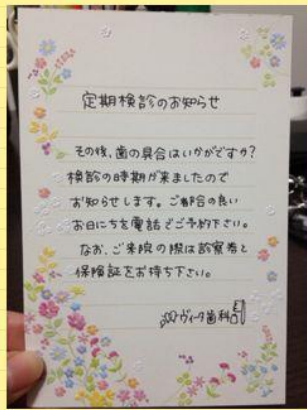 定期検診のお知らせ
その後、歯の具合はいかがですか?
検診の時期が来ましたので
お知らせします。ご都合の良い
お日にちを電話でご予約下さい。
なお、ご来院の際は診察券と
保険証をお持ち下さい。
ヴィータ歯科